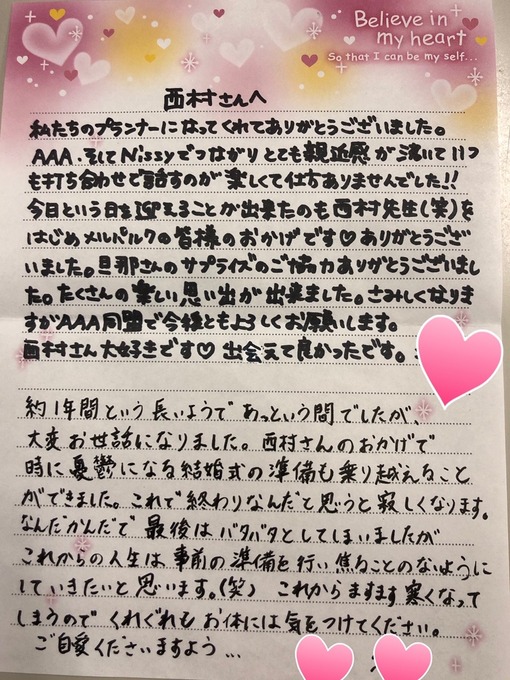 Believe in
my heart
So that I can be my self...
西村さんへ
私たちのプランナーになってくれてありがとうございました。
AAA、そしてNissyでつながりとても親近感が湧いていつ
も打ち合わせで話すのが楽しくて仕方ありませんでした!!
今日という日を迎えることが出来たのも西村先生(笑)を
はじめメルパルクの皆様のおかげです♡ありがとうござ
いました。旦那さんのサプライズのご協力ありがとうございまし
た。たくさんの楽しい思い出が出来ました。さみしくなりま
すがAAA同盟で今後ともよろしくお願いします。
西村さん大好きです♡出会えて良かったです。
約1年間という長いようであっという間でしたが、
大変お世話になりました。西村さんのおかげで
時に憂鬱になる結婚式の準備も乗り越えること
ができました。これで終わりなんだと思うと寂しくなります。
なんだかんだで最後はバタバタとしてしまいましたが
これからの人生は事前の準備を行い焦ることのないように
していきたいと思います。(笑) これからますます寒くなって
しまうのでくれぐれもお体には気をつけてください。
ご自愛くださいますよう…